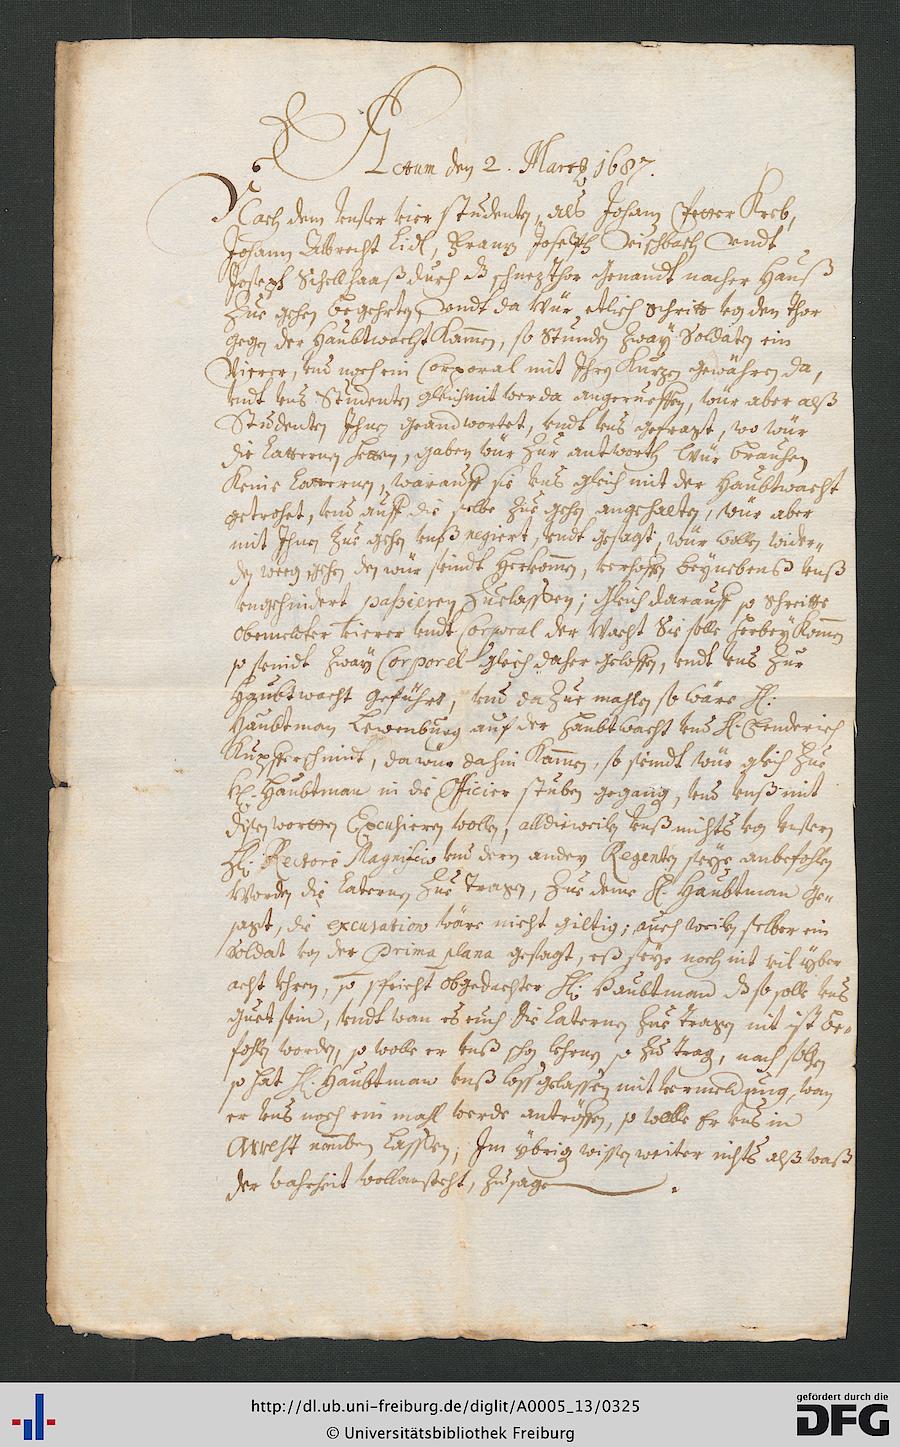 Actum den 2. Martz 1687.
Nach dem unser vier Studenten, als Johann Petter Kreb,
Johann Albrecht Lidl, Frantz Joseph Vischbach undt
Joseph Schellhaaß durch dß schnetzthor genandt nacher Hauß
Zue gehen begehrten, undt da wür etlich schritt von den thor
gegen der Haubtwacht Kammen, so stunden zway Soldaten ein
Vierer, und noch ein Corporal mit Ihren Kurtzen gewähren da,
undt uns Studenten gleich mit wer da angerueffen, wür aber alß
Studenten Ihnen geandwortet, undt uns gefragt, wo wür
die Latternen hetten, gaben wür zur antworth wür brauchen
Keine Latternen, warauff sie uns gleich mit der Haubtwacht
getrohet, und auff die selbe zue gehen angehalten, wür aber
mit Ihnen zue gehen unß negiert, undt gesagt, wür wollen wider-
den weeg gehen den wür seindt herkommen, verhoffen beynebens unß
ungehindert passieren zuelassen; gleich darauff so schreitte
obemelter vierer undt Corporal der Wacht Sie solle herbey Kommen
so seindt zway Corporal gleich daher geloffen, undt uns zur
Haubtwacht geführt, und da zue mahlen so wäre H:
Haubtman Lewenburg auf der Haubtwacht und H: Fenderich
Kupferschmidt, da wür dahin Kammen, so seindt wür gleich zue
H: Haubtman in die Officier stuben gegang, und unß mit
disen worten Excusieren wollen, alldieweilen unß nichts von unsern
H: Rectore Magnifico und dern andern Regenten seye anbefohlen
worden die Laternen zue tragen, zue deme H: Haubtman ge-
sagt, die excusation wäre nicht giltig; auch weilen selber ein
soldat von der prima plana gesagt, eß seye noch nit vil yber
acht uhren, so spricht obgedachter H: Haubtman dß so solle uns
guet sein, undt wan es euch die Laternen zue tragen nit ist be-
fohlen worden, so wolle er unß schon lehrnen so zu trag, nach solchen
so hat H: Haubtman unß loß gelassen mit vermeldung, wan
er uns noch ein mahl werde antröffen, so wolle Er uns in
Arrest nemben lassen; Im ybrig wissen weiter nichts alß waß
der wahrheit vollansteht, zu sagen.
http://dl.ub.uni-freiburg.de/diglit/A0005_13/0325
© Universitätsbibliothek Freiburg
gefördert durch die
DFG